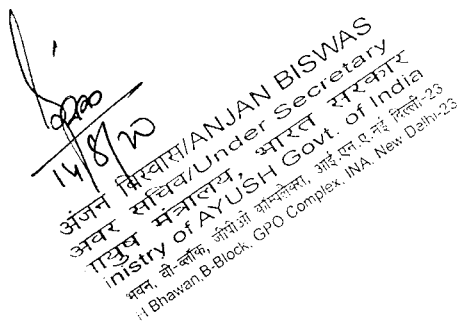 14/8/20
अंजन बिस्वास/ANJAN BISWAS
अवर सचिव/Under Secretary
ायुष मंत्रालय, भारत सरकार
inistry of AYUSH Govt. of India
भवन, बी-ब्लॉक, जीपीओ कॉम्पलेक्स, आई.एन.ए. नई दिल्ली-23
H Bhawan,B-Block, GPO Complex, INA, New Delhi-23